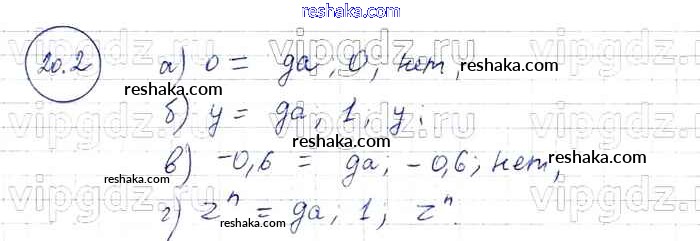 reshaka.com
vipgdz.ru vipgdz.ru
20.2 а) 0 = да, 0, нет,
reshaka.com
б) y = да, 1, y;
reshaka.com
vipgdz.ru vipgdz.ru
в) -0,6 = да; -0,6; нет,
reshaka.com
г) zⁿ = да; 1; zⁿ.
reshaka.com
vipgdz.ru vipgdz.ru